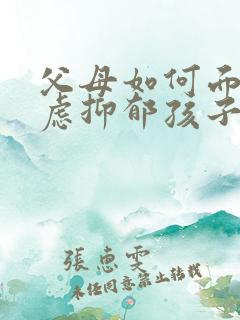 父母如何而
虑抑郁孩子
張惠雯
未经同意禁止转载